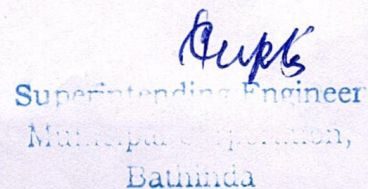 Gupta
Superintending Engineer
Municipal Corporation,
Bathinda